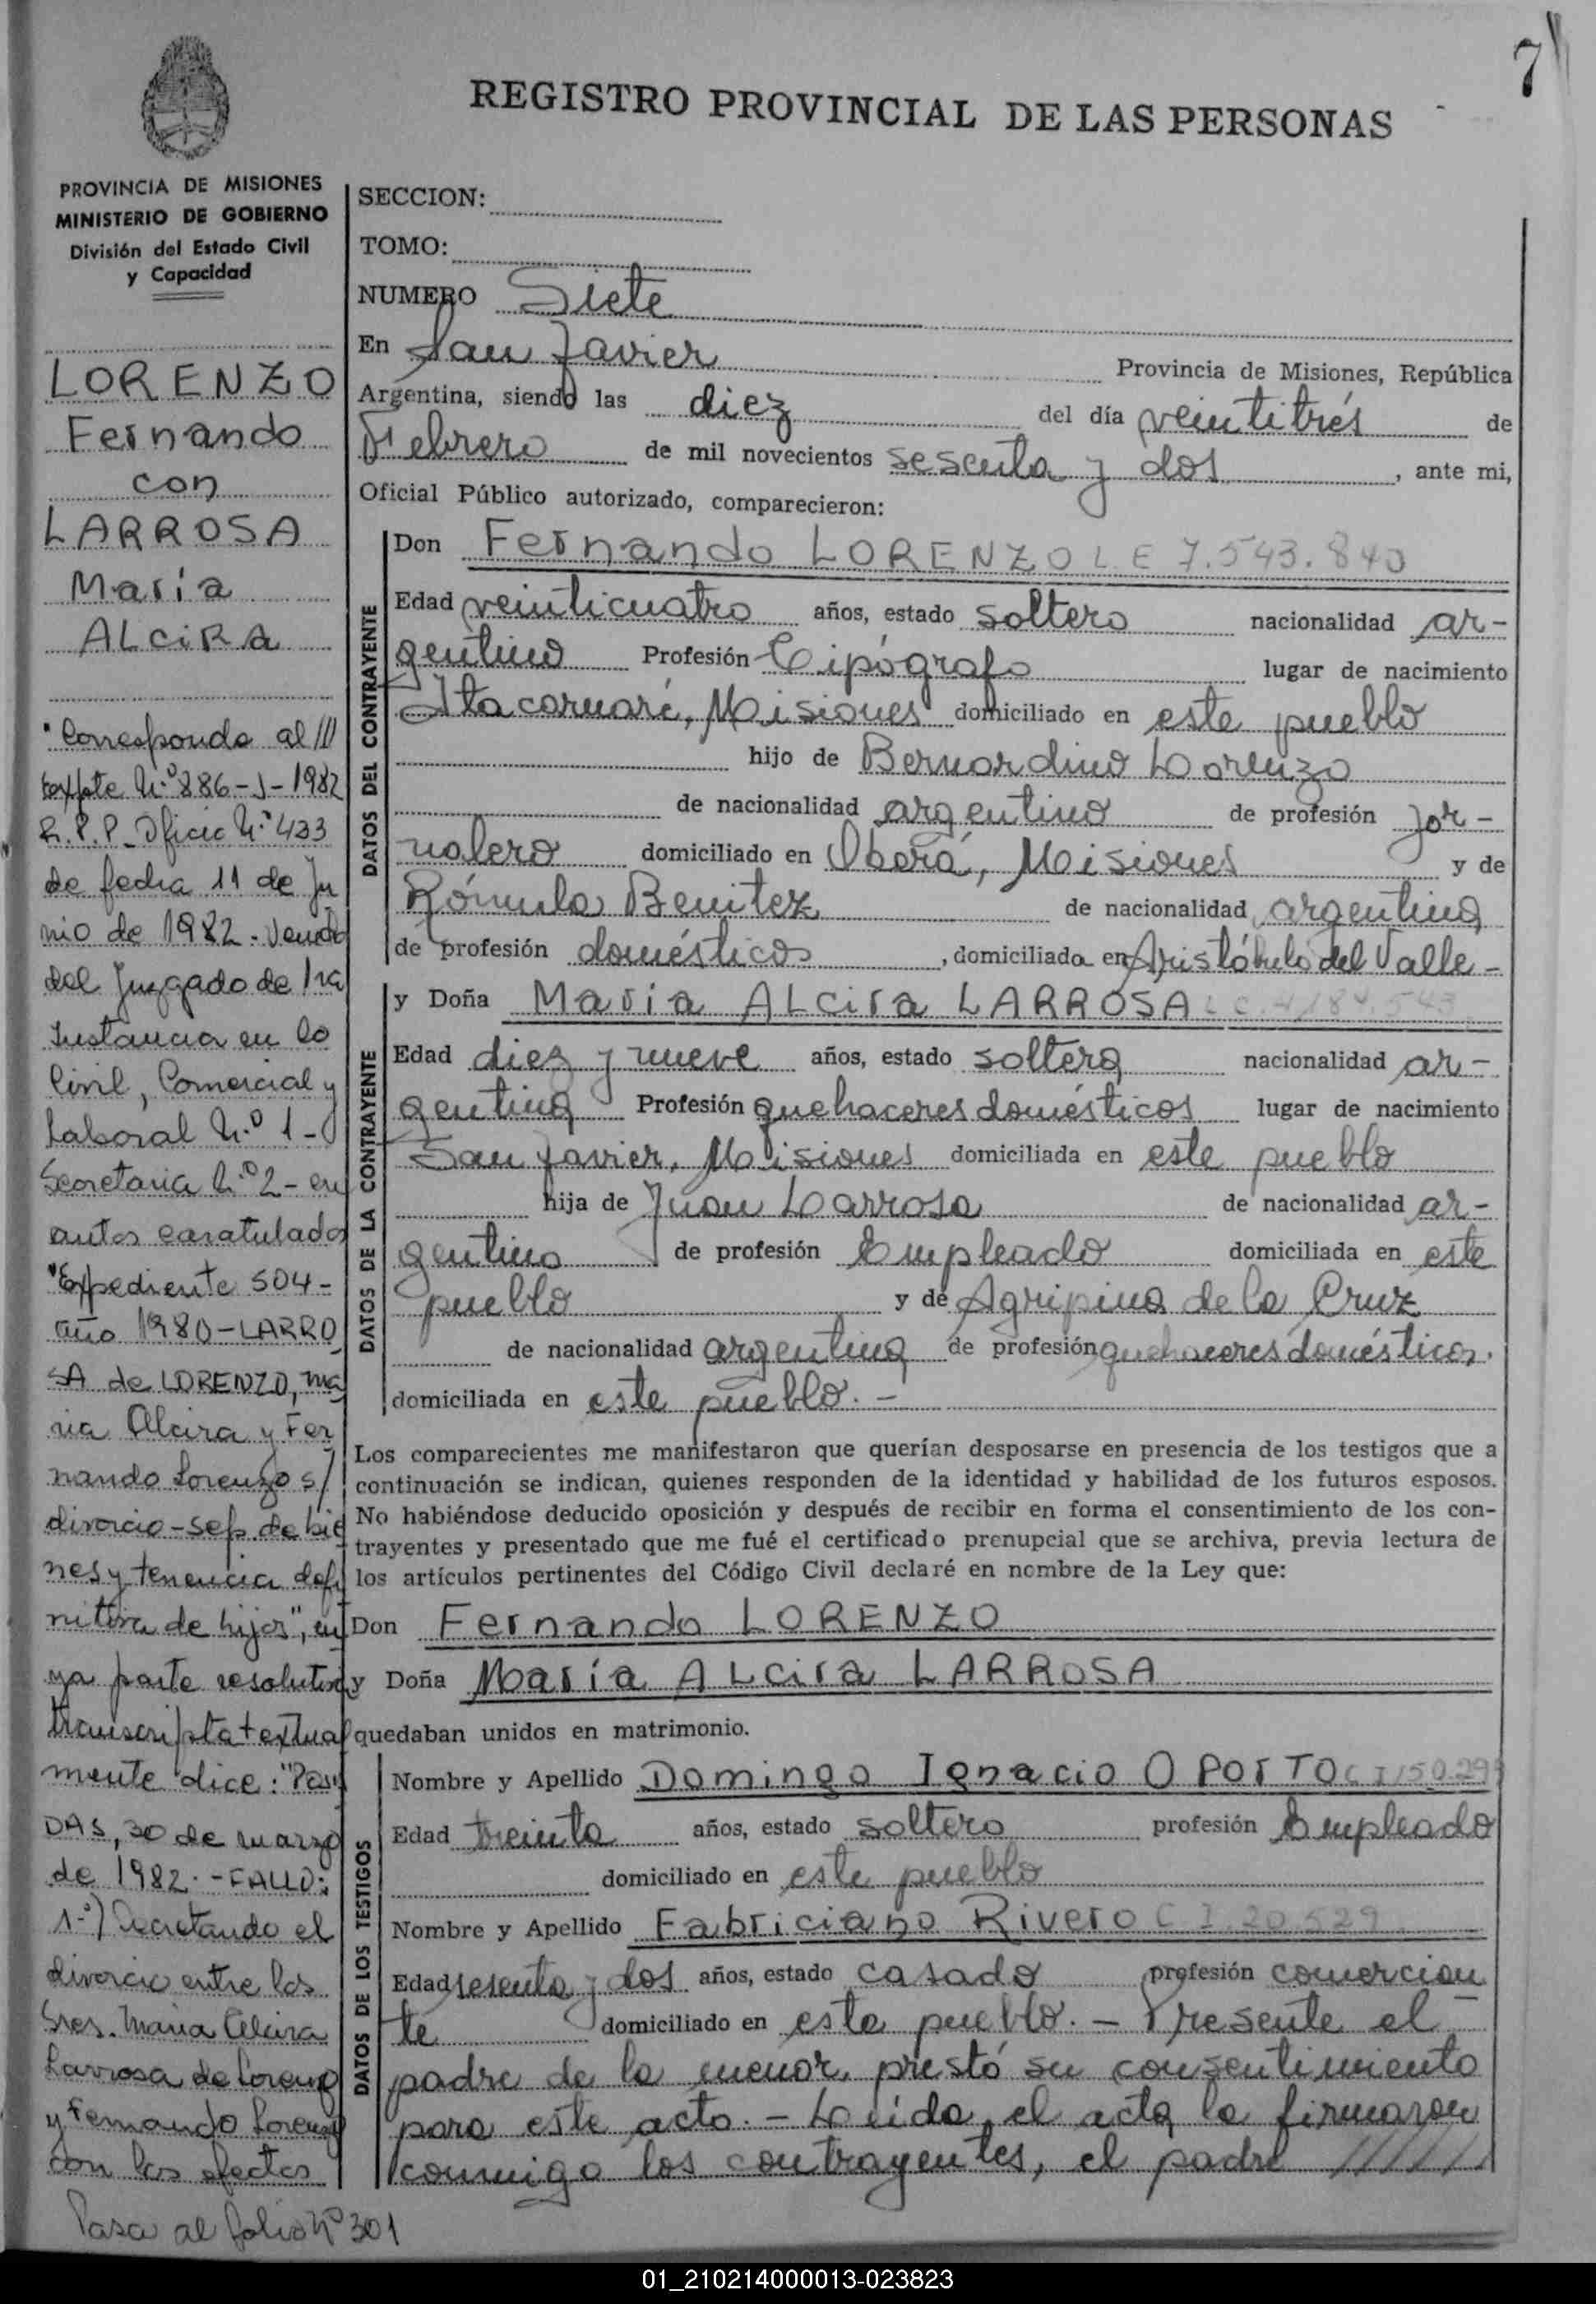 7
REGISTRO PROVINCIAL DE LAS PERSONAS
PROVINCIA DE MISIONES
MINISTERIO DE GOBIERNO
División del Estado Civil
y Capacidad
LORENZO
Fernando
con
LARROSA
María
ALCiRA
"Corresponde al ///
expte N.º 886-J-1982
R.P.P. Oficio N.º 433
de fecha 11 de Ju
nio de 1982.- Venido
del Juzgado de 1ra
Instancia en lo
Civil, Comercial y
Laboral N.º 1-
Secretaria N.º 2- en
autos caratulados
"Expediente 504-
año 1980-LARRO
SA de LORENZO, Ma
ria Alcira y Fer
nando Lorenzo s/
divorcio-sep. de bie
nes y tenencia defi
nitiva de hijos", cu
ya parte resolutiva
transcripta textual
mente dice: "Posa
DAS, 30 de marzo
de 1982.-FALLO:
1-º) Decretando el
divorcio entre los
Sres. Maria Alcira
Larrosa de Lorenzo
y Fernando Lorenzo
con los efectos
Pasa al folio Nº 301
SECCION:
TOMO:
NUMERO Siete
En San Javier Provincia de Misiones, República
Argentina, siendo las diez del día veintitrés de
Febrero de mil novecientos sesenta y dos, ante mi,
Oficial Público autorizado, comparecieron:
DATOS DEL CONTRAYENTE
Don Fernando LORENZO L E 7.543.840
Edad veinticuatro años, estado soltero nacionalidad ar-
gentino Profesión Tipógrafo lugar de nacimiento
Itacaruaré, Misiones domiciliado en este pueblo
hijo de Bernardino Lorenzo
de nacionalidad argentino de profesión jor-
nalero domiciliado en Oberá, Misiones y de
Rómula Benitez de nacionalidad argentina
de profesión domésticos, domiciliada en Aristóbulo del Valle-
DATOS DE LA CONTRAYENTE
y Doña María ALcira LARROSA
Edad diez y nueve años, estado soltera nacionalidad ar-
gentina Profesión quehaceres domésticos lugar de nacimiento
San Javier, Misiones domiciliada en este pueblo
hija de Juan Larrosa de nacionalidad ar-
gentino de profesión Empleado domiciliada en este
pueblo y de Agripina de la Cruz
de nacionalidad argentina de profesión quehaceres domésticos.
domiciliada en este pueblo.-
Los comparecientes me manifestaron que querían desposarse en presencia de los testigos que a
continuación se indican, quienes responden de la identidad y habilidad de los futuros esposos.
No habiéndose deducido oposición y después de recibir en forma el consentimiento de los con-
trayentes y presentado que me fué el certificado prenupcial que se archiva, previa lectura de
los artículos pertinentes del Código Civil declaré en nombre de la Ley que:
Don Fernando LORENZO
y Doña María ALcira LARROSA
quedaban unidos en matrimonio.
DATOS DE LOS TESTIGOS
Nombre y Apellido Domingo Ignacio OPorTO
Edad treinta años, estado soltero profesión Empleado
domiciliado en este pueblo
Nombre y Apellido Fabriciano Rivero C I. 20.529
Edad sesenta y dos años, estado casado profesión comercian
te domiciliado en este pueblo.- Presente el
padre de la menor, prestó su consentimiento
para este acto.- Leída el acta la firmaron
conmigo los contrayentes, el padre //////
01_210214000013-023823